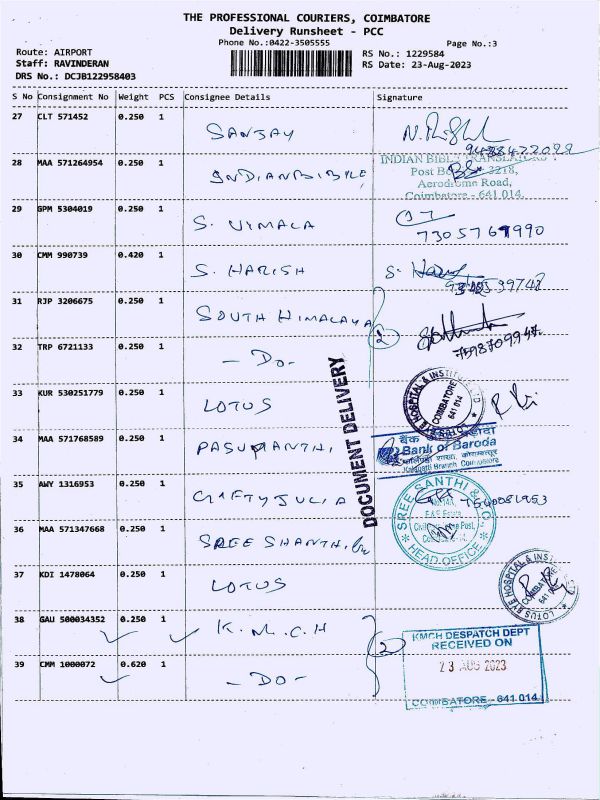 THE PROFESSIONAL COURIERS, COIMBATORE
Delivery Runsheet - PCC
Phone No.:0422-3505555
Page No.:3
Route: AIRPORT
RS No.: 1229584
Staff: RAVINDERAN
RS Date: 23-Aug-2023
DRS No.: DCJB122958403
S No Consignment No Weight PCS Consignee Details Signature
27 CLT 571452 0.250 1 SANJAY
9488422099
28 MAA 571264954 0.250 1 INDIANBIBLE
INDIAN BIBLE TRANSLATORS
Post Box 3218,
Aerodrome Road,
Coimbatore - 641 014.
29 GPM 5304019 0.250 1 S. VIMALA
7305769990
30 CMM 990739 0.420 1 S. HARISH S.
31 RJP 3206675 0.250 1 SOUTH HIMALAYA
2
7598709947
32 TRP 6721133 0.250 1 - DO -
33 KUR 530251779 0.250 1 LOTUS
LOTUS EYE HOSPITAL & INSTITUTE LTD
COIMBATORE
641 014
34 MAA 571768589 0.250 1 PASUMANTHI
बैंक ऑफ़ बड़ौदा
Bank of Baroda
Kalapatti Branch, Coimbatore
DOCUMENT DELIVERY
35 AWY 1316953 0.250 1 GIFTYJULIA
36 MAA 571347668 0.250 1 SREE SHANTHI
SREE SANTHI & CO
Civil Aerodrome Post,
Coimbatore-14.
HEAD OFFICE
37 KDI 1478064 0.250 1 LOTUS
LOTUS EYE HOSPITAL & INSTITUTE LTD
COIMBATORE
641 014
38 GAU 500034352 0.250 1 K.M.C.H
2
KMCH DESPATCH DEPT
RECEIVED ON
23 AUG 2023
COIMBATORE - 641 014.
39 CMM 1000072 0.620 1 - DO -